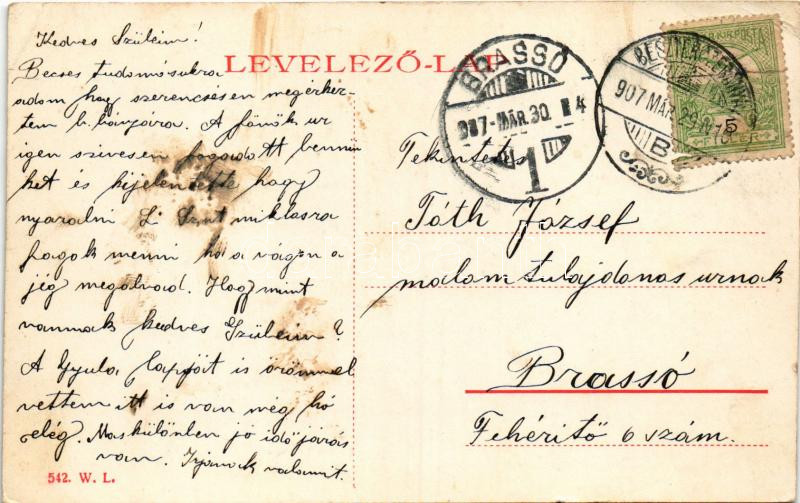 Kedves Szüleim!
LEVELEZŐ-LAP
Becses tudomásukra
adom hogy szerencsésen megérkez-
tem b. bányára. A főnök ur
igen szivesen fogadott bennün
ket és kijelentette hogy
nyaralni L. Szent miklósra
fogok menni ha a vágon a
jég megolvad. Hogy mint
vannak kedves Szüleim?
A Gyula lapját is örömmel
vettem itt is van még hó
elég. Maskülönben jó idő járás
van. Irjanak valamit.
542. W. L.
BRASSÓ
907-MÁR.30.
1
907 MÁR.29
B
5
Tekintetes
Tóth József
malomtulajdonos urnak
Brassó
Fehéritő 6 szám.